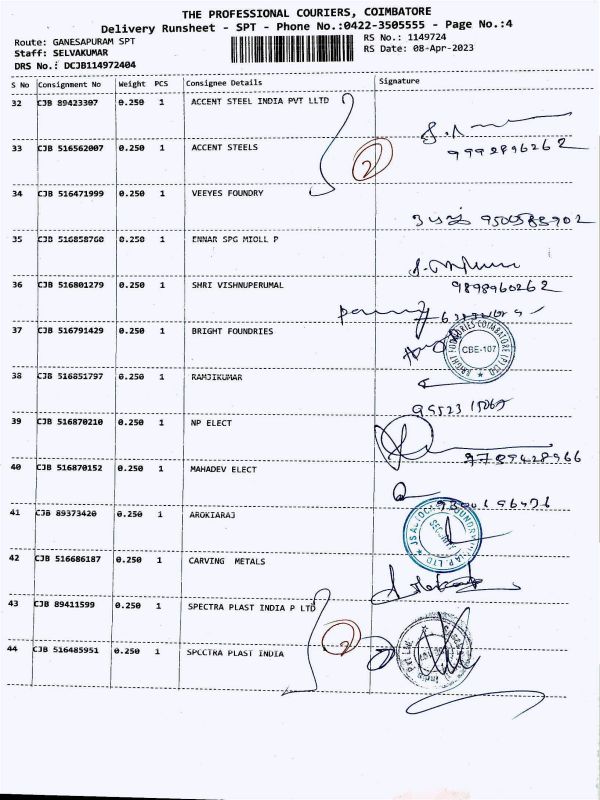 THE PROFESSIONAL COURIERS, COIMBATORE
Delivery Runsheet - SPT - Phone No.:0422-3505555 - Page No.:4
Route: GANESAPURAM SPT
RS No.: 1149724
Staff: SELVAKUMAR
RS Date: 08-Apr-2023
DRS No.: DCJB114972404
S No Consignment No Weight PCS Consignee Details Signature
32 CJB 89423307 0.250 1 ACCENT STEEL INDIA PVT LLTD
33 CJB 516562007 0.250 1 ACCENT STEELS
2
34 CJB 516471999 0.250 1 VEEYES FOUNDRY
35 CJB 516858760 0.250 1 ENNAR SPG MIOLL P
36 CJB 516801279 0.250 1 SHRI VISHNUPERUMAL
9898960262
37 CJB 516791429 0.250 1 BRIGHT FOUNDRIES
CBE-107
38 CJB 516851797 0.250 1 RAMJIKUMAR
39 CJB 516870210 0.250 1 NP ELECT
40 CJB 516870152 0.250 1 MAHADEV ELECT
41 CJB 89373420 0.250 1 AROKIARAJ
42 CJB 516686187 0.250 1 CARVING METALS
43 CJB 89411599 0.250 1 SPECTRA PLAST INDIA P LTD
2
44 CJB 516485951 0.250 1 SPCCTRA PLAST INDIA